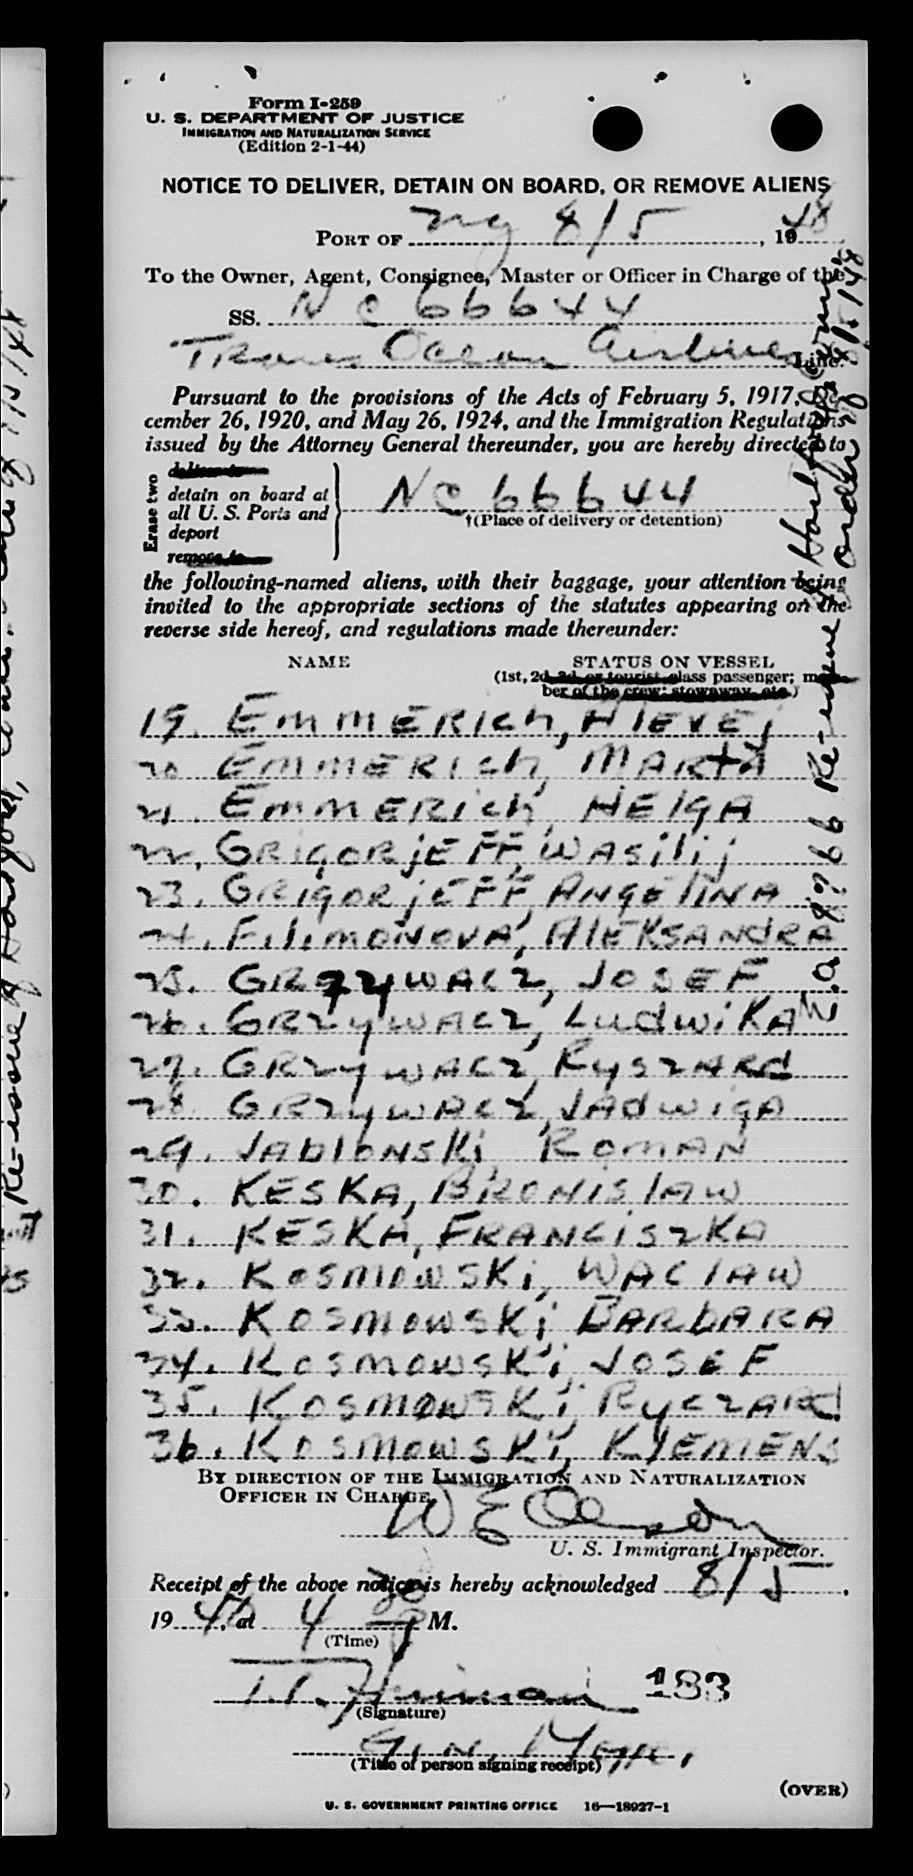 Form I-259
U. S. DEPARTMENT OF JUSTICE
IMMIGRATION AND NATURALIZATION SERVICE
(Edition 2-1-44)
NOTICE TO DELIVER, DETAIN ON BOARD, OR REMOVE ALIENS
PORT OF NY 8/5, 1948
To the Owner, Agent, Consignee, Master or Officer in Charge of the
SS. NC 66644
Trans Ocean Airlines Line.
Pursuant to the provisions of the Acts of February 5, 1917, De-
cember 26, 1920, and May 26, 1924, and the Immigration Regulations
issued by the Attorney General thereunder, you are hereby directed to
Erase two
deliver to
detain on board at
all U. S. Ports and
deport
remove to
NC 66644
†(Place of delivery or detention)
the following-named aliens, with their baggage, your attention being
invited to the appropriate sections of the statutes appearing on the
reverse side hereof, and regulations made thereunder:
NAME STATUS ON VESSEL
(1st, 2d, 3d, or tourist class passenger; mem-
ber of the crew; stowaway, etc.)
19. EMMERICH, HIEVEJ
20 EMMERICH, MARTA
21. EMMERICH, HElGA
22. GRIGORjEFF, WASilij
23. GRIGORjEFF ANGElINA
24. FiliMONOVA, AlEKSANdRA
25. GRZYWACZ, JOSEF
26. GRZYWACZ, LudWiKA
27. GRZYWACZ, RYSZARd
28 GRZYWACZ, JAdWiGA
29. JAblONSKi ROMAN
30. KESKA, BRONISlAW
31. KESKA, FRANCiSZKA
32. KOSMOWSKi, WAClAW
33. KOSMOWSKi BARbARA
34. KOSMOWSKi, JOSEF
35. KOSMOWSKi RYCZARd
36. KOSMOWSKi, KlEMENS
BY DIRECTION OF THE IMMIGRATION AND NATURALIZATION
OFFICER IN CHARGE
W E Olson
U. S. Immigrant Inspector.
Receipt of the above notice is hereby acknowledged 8/5,
1948, at 4 30 P M.
(Time)
183
(Signature)
(Title of person signing receipt)
(OVER)
U. S. GOVERNMENT PRINTING OFFICE 16—18927-1
Re-issue of Hartford
order of 8/5/48